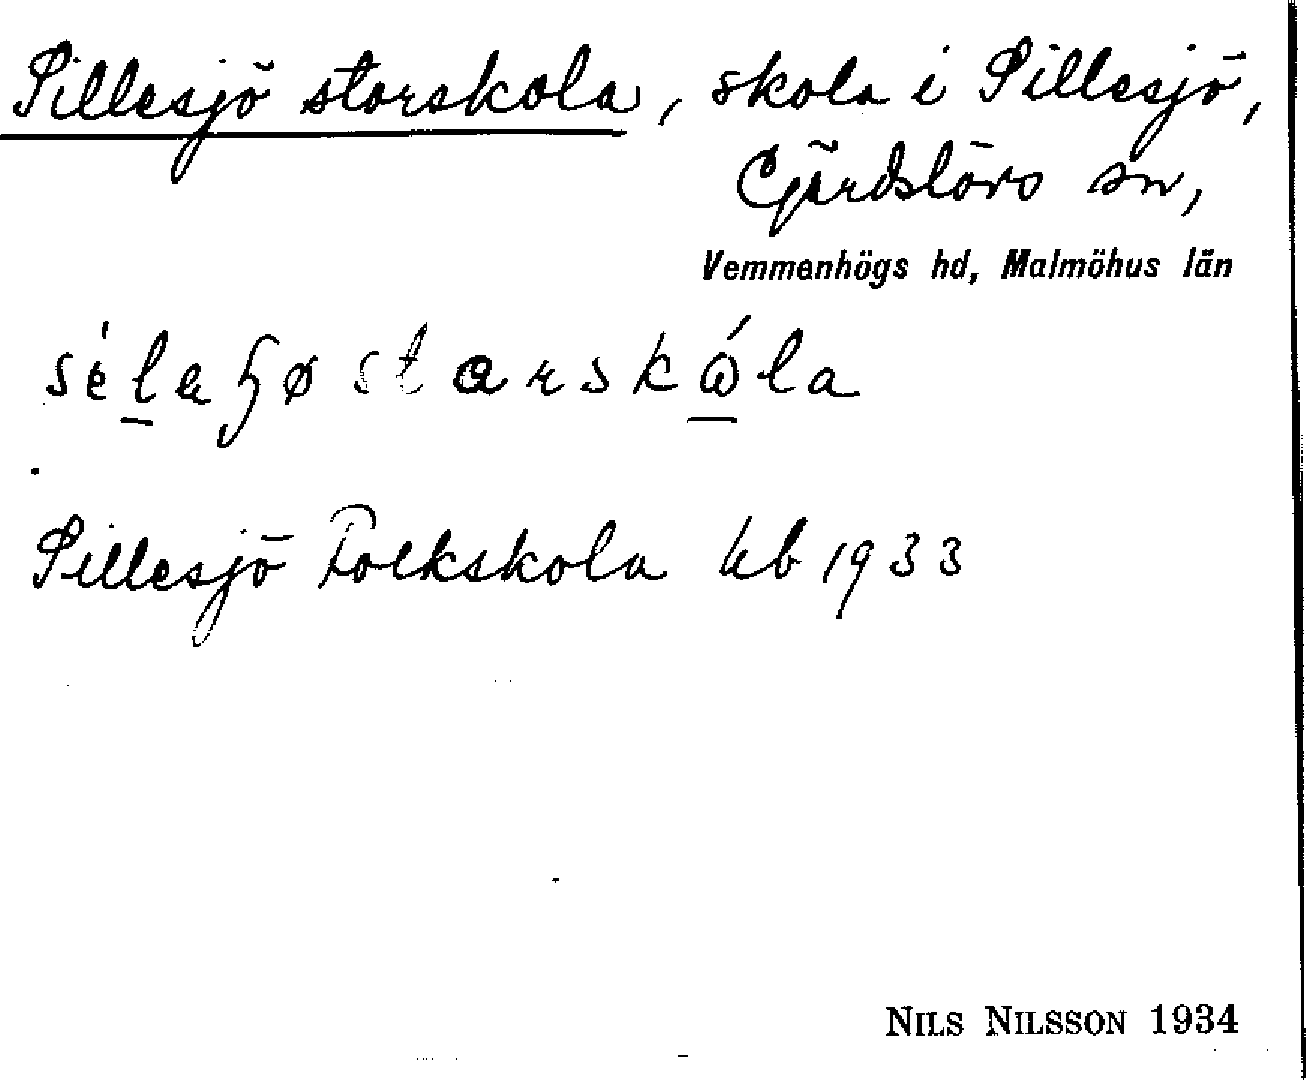 Sillesjö storskola, skola i Sillesjö,
Gärdslövs sn,
Vemmenhögs hd, Malmöhus län
Sillesjö Folkskola Ub 1933
NILS NILSSON 1934